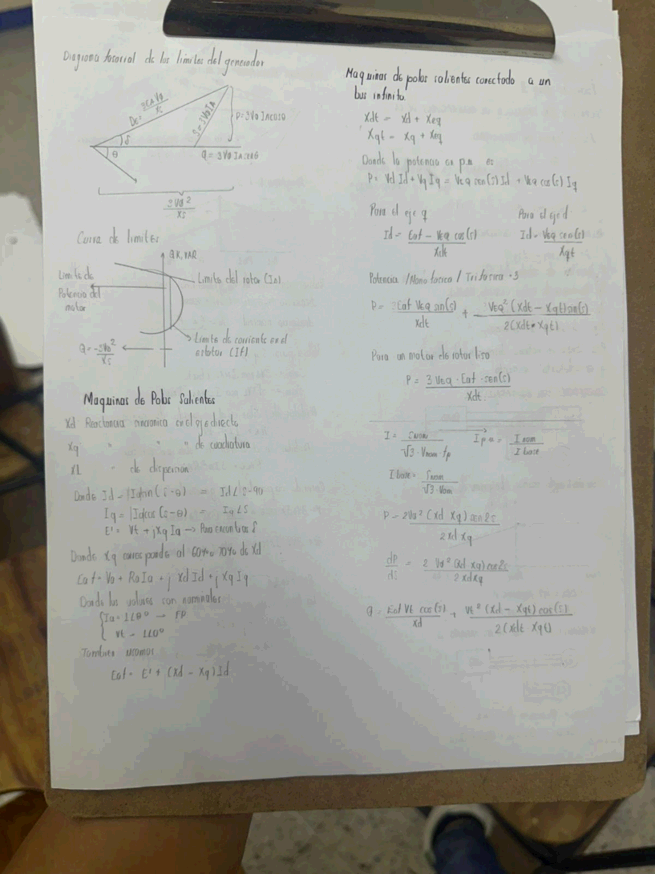 Diagrama fasorial de los limites del generador
DE = 3EA VΦ / Xs
S = 3VΦ IA
P = 3VΦ IA cosΘ
δ
Θ
Q = 3VΦ IA senΘ
3VΦ² / Xs
Curva de limites
Q K, VAR
Limite de
Potencia del
motor
Limite del rotor (In)
Limite de corriente en el
estator (If)
Q = -3VΦ² / Xs
Maquinas de Polos Salientes
Xd Reactancia sincronica en el eje directo
Xq " " " de cuadratura
Xl " de dispersion
Donde Id = |Ia|sen(δ-θ) = Id∠δ-90
Iq = |Ia|cos(δ-θ) = Iq∠δ
E' = Vt + jXq Ia → Para encontrar δ
Donde Xq corresponde al 60% o 70% de Xd
Eaf = Va + RaIa + j Xd Id + j Xq Iq
Donde los valores son nominales
Ia = 1∠θ° → FP
Vt = 1∠0°
Tambien usamos
Eaf = E' + (Xd - Xq) Id
Maquinas de polos salientes conectado a un
bus infinito
Xdt = Xd + Xeq
Xqt = Xq + Xeq
Donde la potencia en p.u es
P = Vd Id + Vq Iq = Veq sen(δ) Id + Veq cos(δ) Iq
Para el eje q Para el eje d
Id = Eaf - Veq cos(δ) / Xdt Id = Veq sen(δ) / Xqt
Potencia /Monofasica / Trifasica ·3
P = 3 Eaf Veq sen(δ) / Xdt + Veq² (Xdt - Xqt)sen(δ) / 2(Xdt * Xqt)
Para un motor de rotor liso
P = 3 Veq · Eaf · sen(δ) / Xdt
I = Snom / √3 · Vnom · fp Ip u = I nom / I base
I base = Snom / √3 · Vnom
P = 2Va² (Xd Xq) sen2δ / 2 Xd Xq
dP / dδ = 2 Va² (Xd Xq) cos2δ / 2 Xd Xq
Q = Eaf Vt cos(δ) / Xd + Vt² (Xd - Xqt) cos(δ) / 2(Xdt · Xqt)